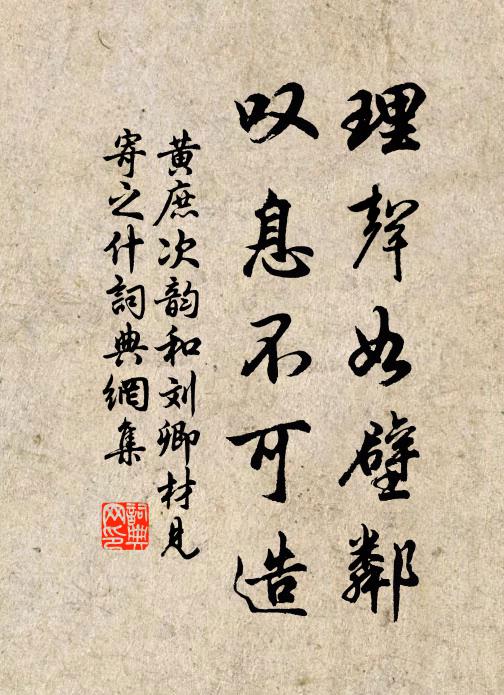 理聲如壁鄰
叹息不可造
黄庶次韵和刘卿材見
寄之什詞典網集
詞典网印